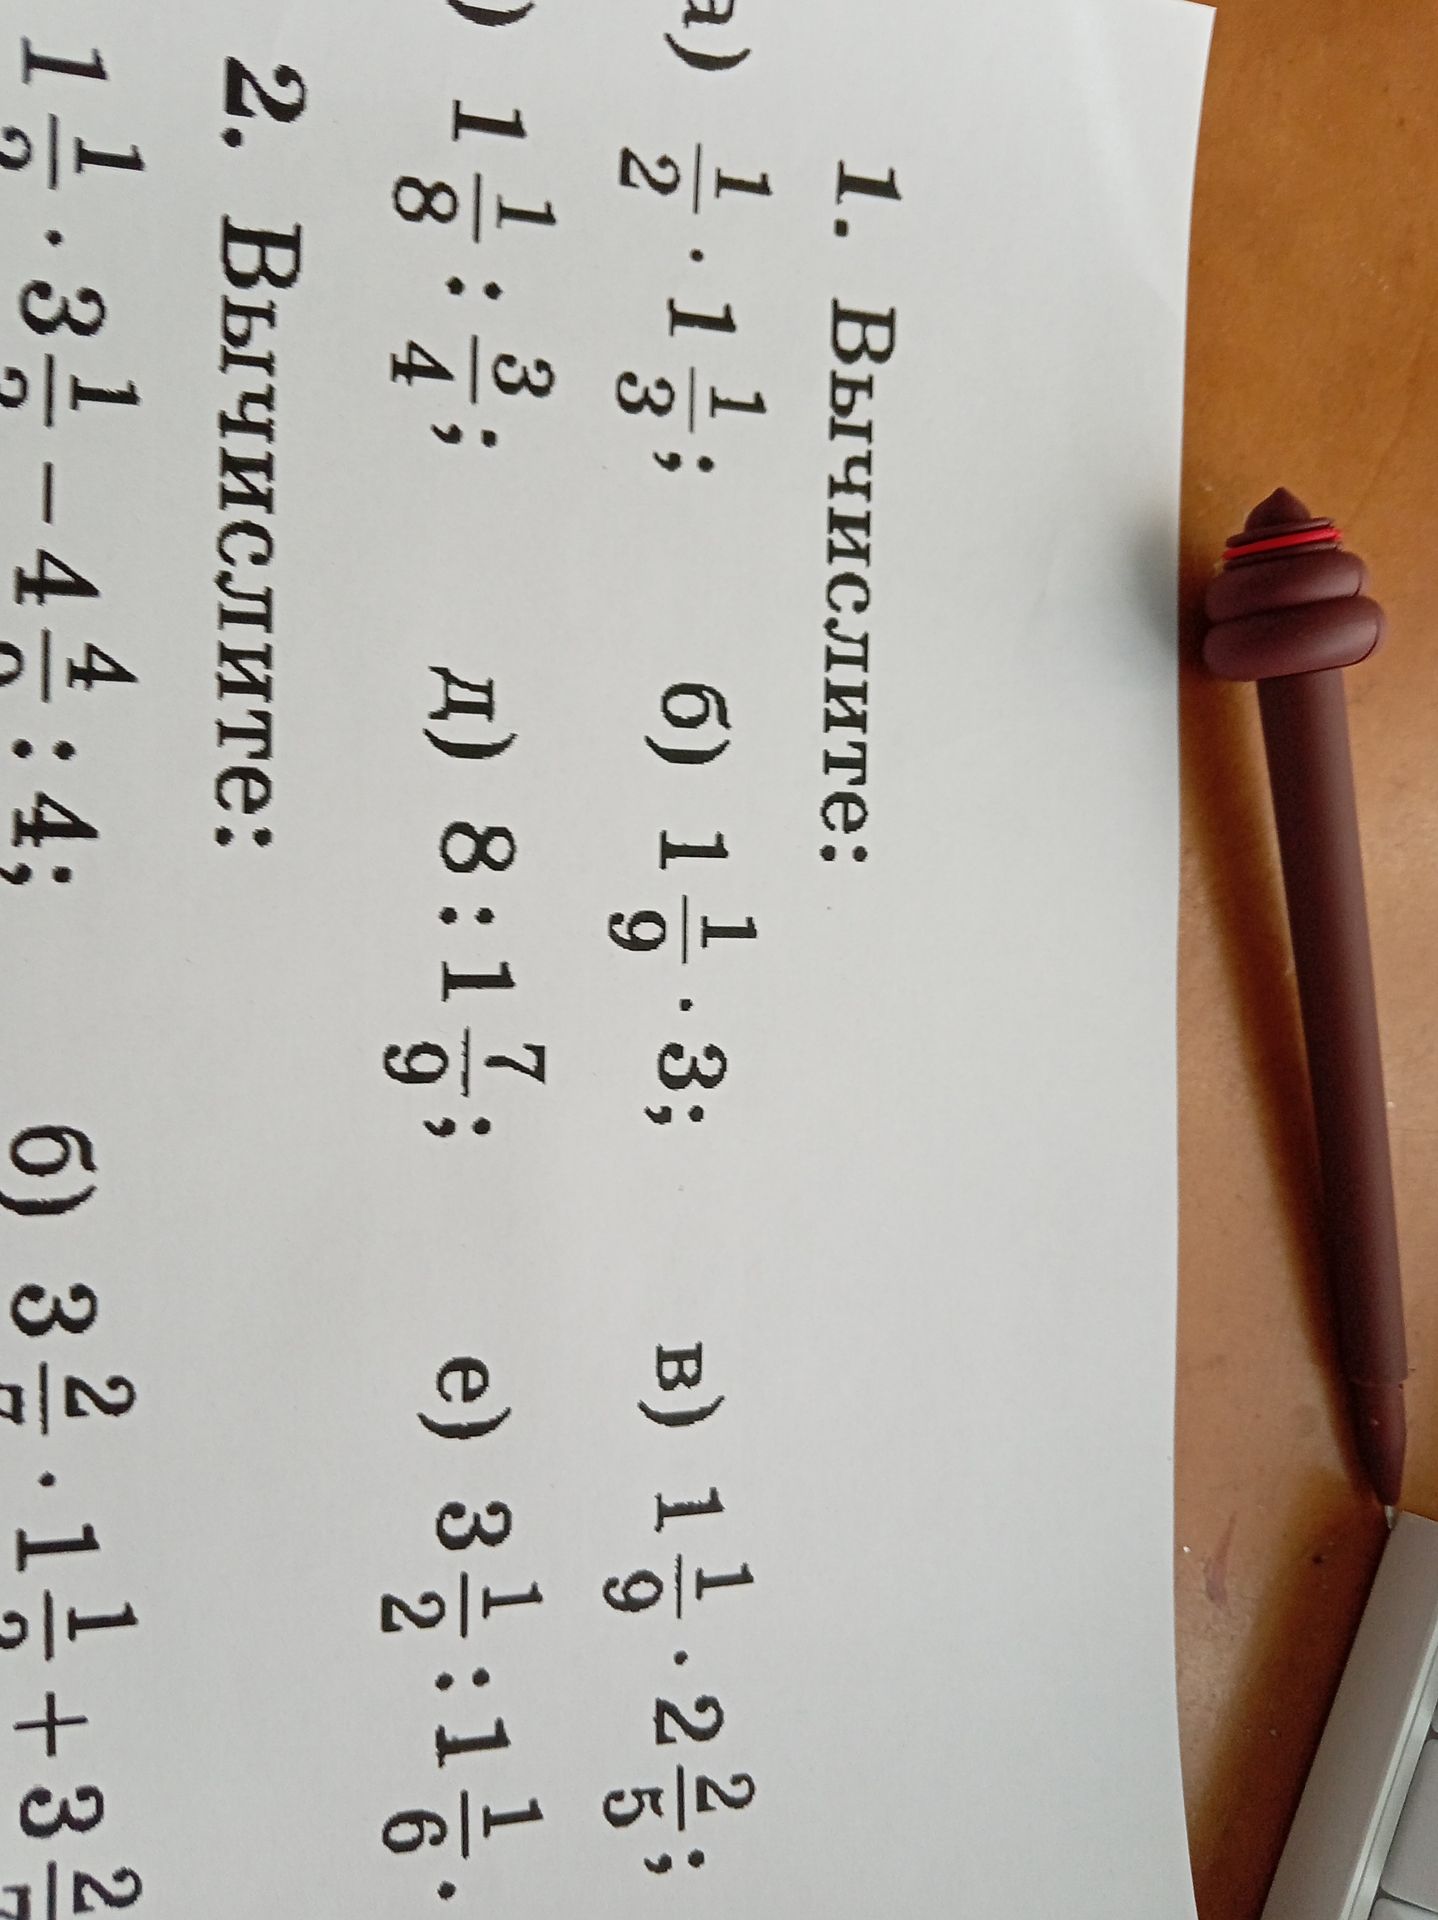 1. Вычислите:
а) 1/2 · 1 1/3; б) 1 1/9 · 3; в) 1 1/9 · 2 2/5;
) 1 1/8 : 3/4; д) 8 : 1 7/9; е) 3 1/2 : 1 1/6.
2. Вычислите:
1 1/2 · 3 1/2 − 4 4/ : 4; б) 3 2/7 · 1 1/2 + 3 2/7